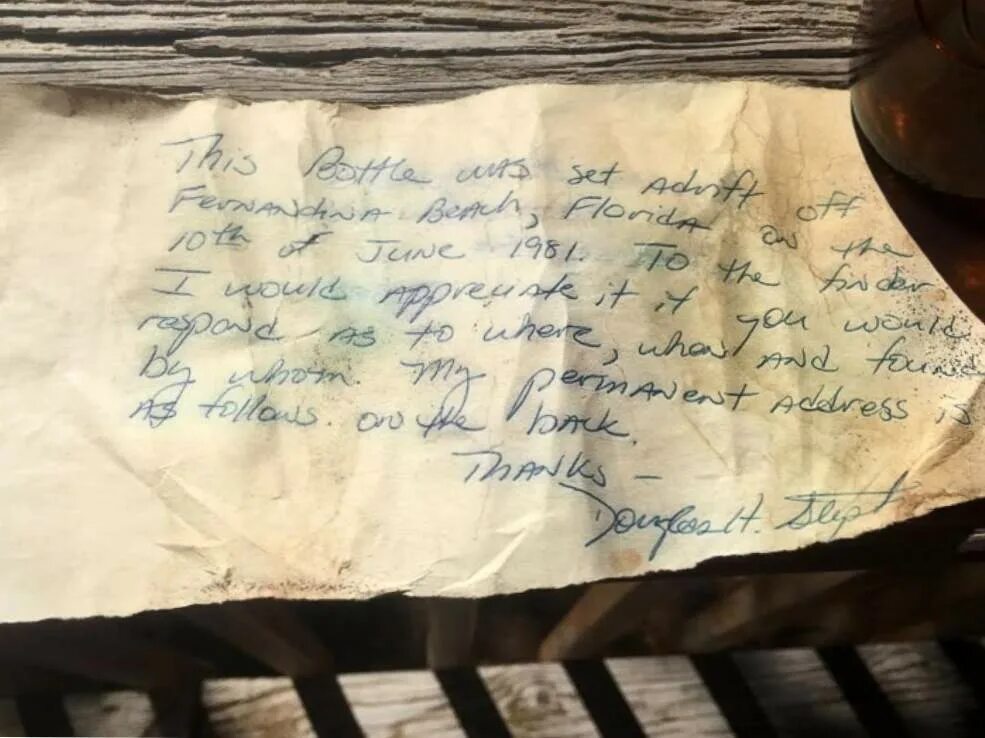 This Bottle was set adrift off
Fernandina Beach, Florida on the
10th of June 1981. To the finder
I would appreciate it if you would
respond as to where, when and found
by whom. My permanent address is
as follows. on the back.
Thanks —
Douglas H.